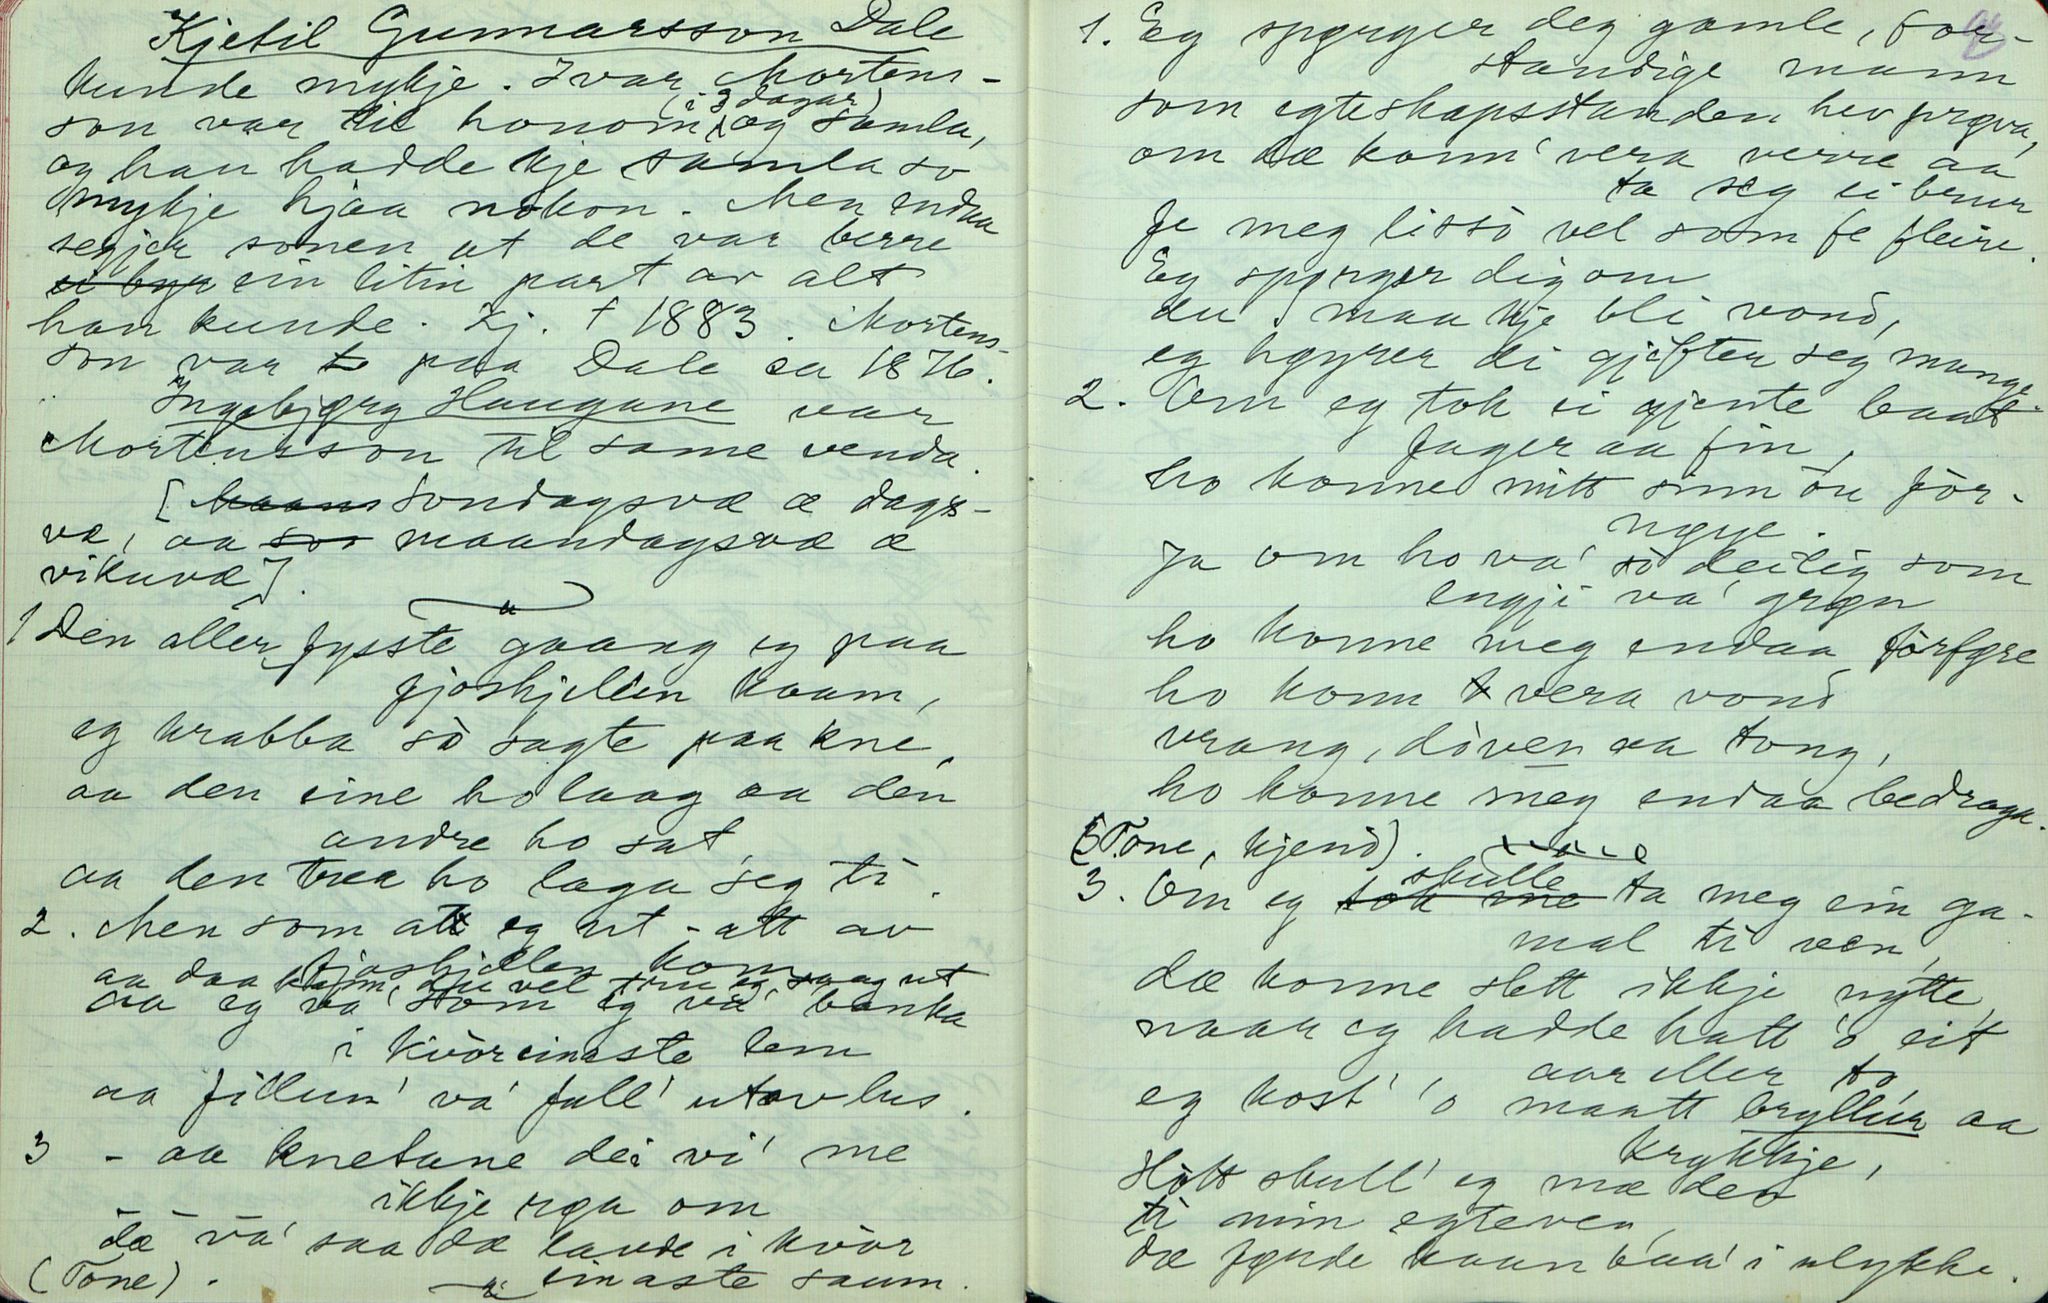 Kjetil Gunnarsson Dale
kunde mykje. Ivar Mortens-
son var til honom (i 3 dagar) og samla,
og han hadde kje samla so
mykje hjaa nokon. Men endaa
segjer sonen at de var berre
ein litin part av alt
han kunde. Kj. † 1883. Mortens-
son var paa Dale ca 1876.
Ingebjørg Haugane var
Mortensson til same venda.
[sondagsvæ æ dags-
væ, aa maandagsvæ æ
vikuvæ].
1 Den aller fysste gaang eg paa
fjoshjellen kaam,
eg krabba so sagte paa kne,
aa den eine ho laag aa den
andre ho sat,
aa den trea ho laga seg ti.
2. Men som att eg ut-att av
fjoshjellen kom
aa daa
aa eg va' som eg va' banka
i kvòr einaste lem
aa fillun' va' full' utav lus.
3 - aa knetane dei vi' me
ikkje røa om
dæ va' saa dæ lavde i kvòr
einaste saum.
(Tone).
1. Eg spørger deg gamle, for-
standige mann
som egteskapsstanden hev prøva,
om dæ konn' vera verre aa
ta seg ei brur
fe meg lisso vel som fe fleire.
Eg spørger dig om
du maa kje bli vond,
eg høyrer di gjifter seg mange.
2. Om eg tok ei gjente baat
fager aa fin,
ho konne mitt sinn òu fòr-
nøye.
Ja om ho va' so deilig som
engji va' grøn
ho konne meg endaa fòrføre
ho konn vera vond
vrang, doven aa tong,
ho konne meg endaa bedraga.
(Tone, kjend).
3. Om eg skulle ta meg ein ga-
mal ti ven,
dæ konne slett ikkje nytte,
naar eg hadde hatt 'o eit
aar eller to,
eg kost' 'o maatt bryllur aa
krykkje,
Hott skull' eg mæ den
ti min egteven,
dæ førde kaan baa' i ulykke.